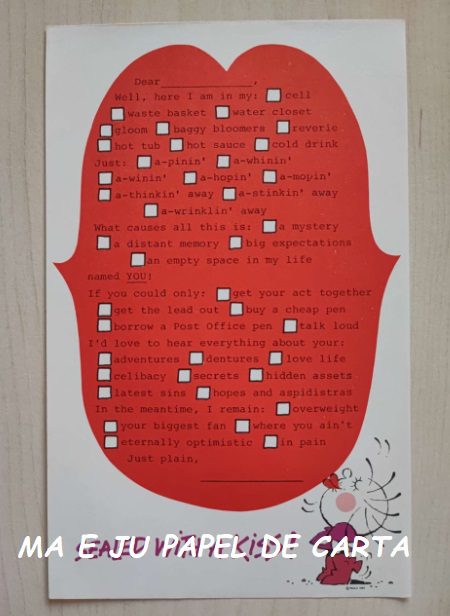 Dear______________,
Well, here I am in my: cell
waste basket water closet
gloom baggy bloomers reverie
hot tub hot sauce cold drink
Just: a-pinin' a-whinin'
a-winin' a-hopin' a-mopin'
a-thinkin' away a-stinkin' away
a-wrinklin' away
What causes all this is: a mystery
a distant memory big expectations
an empty space in my life
named YOU!
If you could only: get your act together
get the lead out buy a cheap pen
borrow a Post Office pen talk loud
I'd love to hear everything about your:
adventures dentures love life
celibacy secrets hidden assets
latest sins hopes and aspidistras
In the meantime, I remain: overweight
your biggest fan where you ain't
eternally optimistic in pain
Just plain,
SEALED WITH A KISS!
MA E JU PAPEL DE CARTA